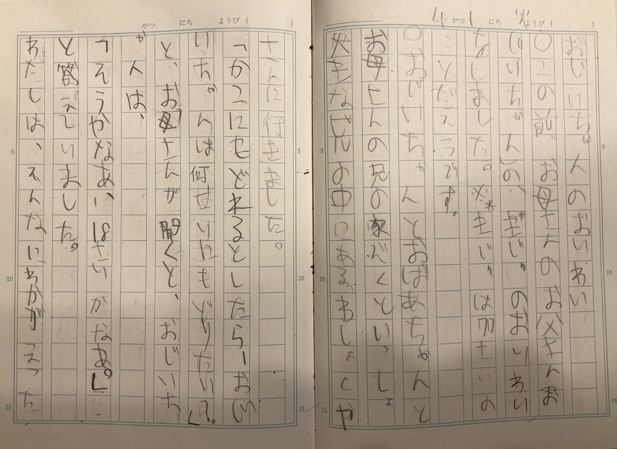 4がつ1にち(火ようび)(　)
おじいちゃんのおいわい
○この前、お母さんのお父さんお
(じいちゃん)の、きじゅのおいわい
をしました。※きじゅは77さいの
ことだそうです。
○おじいちゃんとおばあちゃんと
お母さんの兄の家ぞくといっしょ
大きな
の中にあるわしょくや
さんに行きました。
がつ　にち　ようび(　)
「かこにもどれるとしたら、おじ
いちゃんは何せいにもどりたい?」
と、お母さんが聞くと、おじいち
ゃんは、
「そうやなあ、18さいかなあ。」
と答えていました。
わたしは、そんなにわかがえった